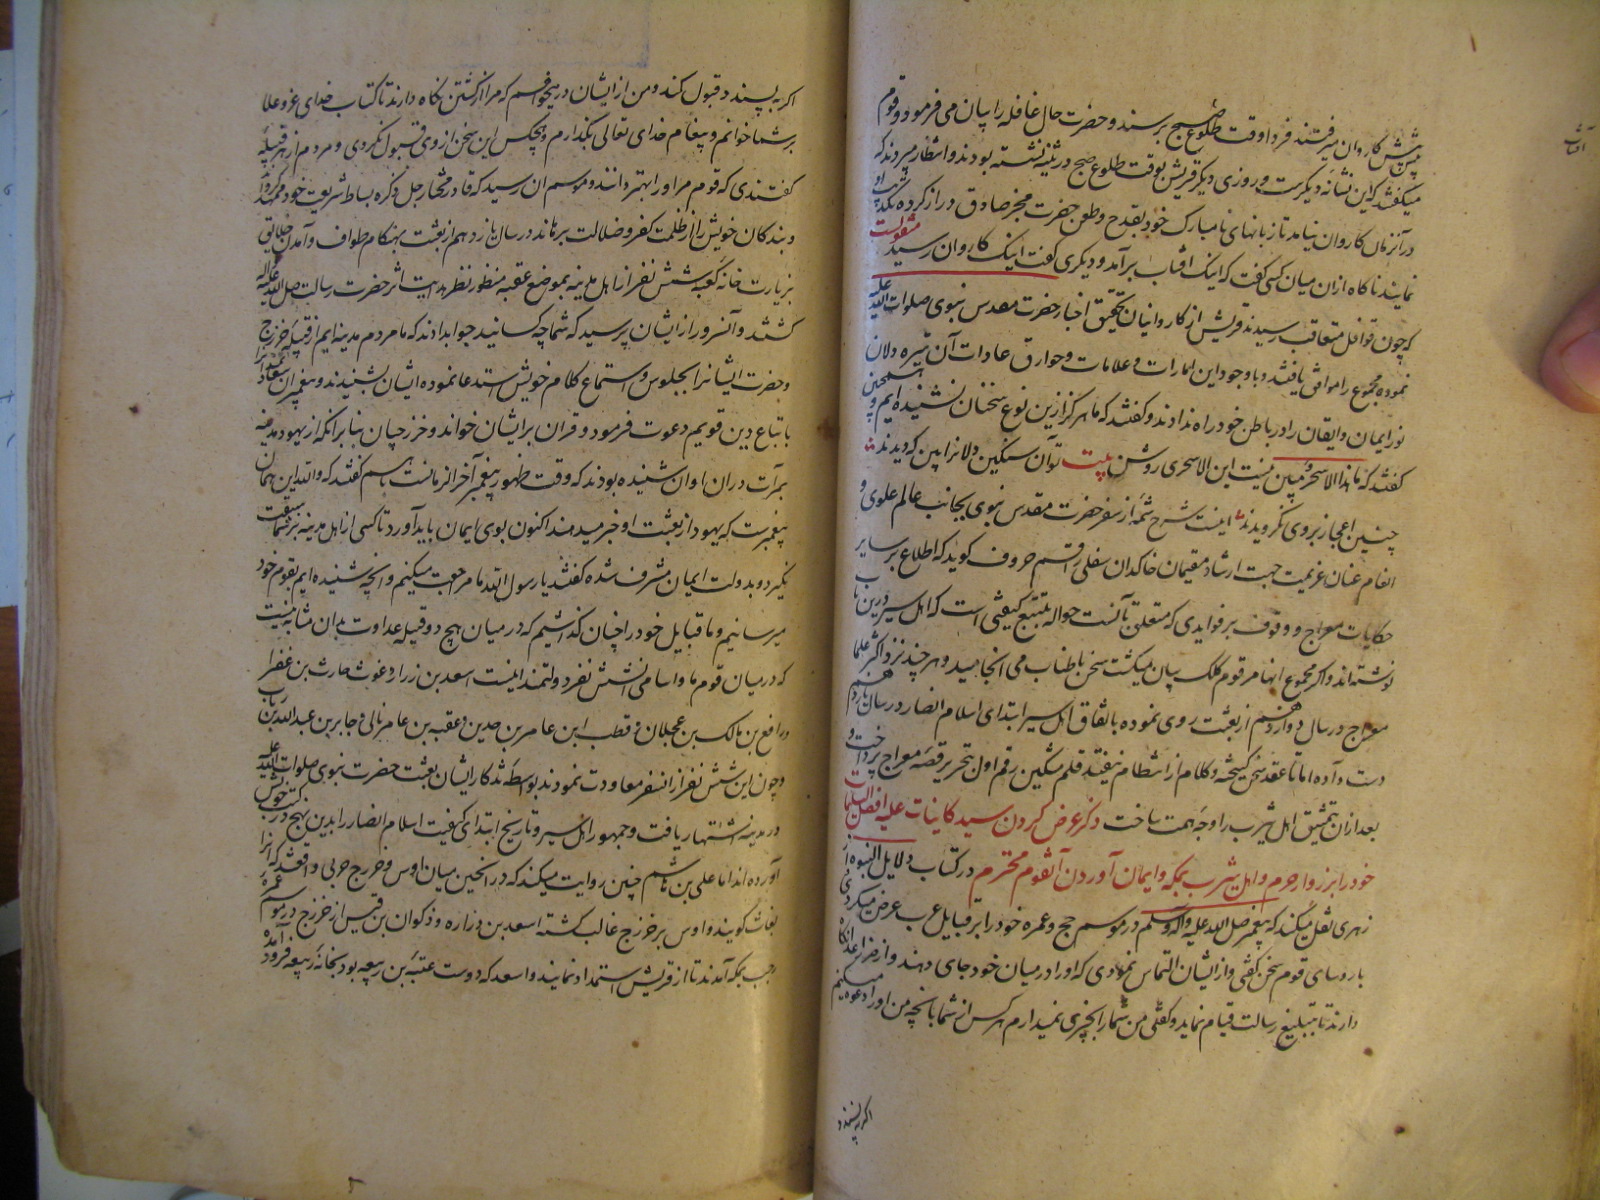 پیش پیش کاروان میرفتند فردا وقت طلوع صبح برسند و حضرت حال غافله را بیان می فرمود و قوم
میگفتند که این نشانه دیگرست و روزی دیگر قریش بوقت طلوع صبح در ثنیه نشسته بودند و انتظار میبردند که
در آنزمان کاروان نیامد تا زبانهای نامبارک خود بقدح و طعن حضرت مخبر صادق دراز کرده تکذیب او
نمایند ناگاه از ان میان کسی گفت که اینک افتاب برآمد و دیگری گفت اینک کاروان رسید منقولست
که چون قوافل متعاقب رسیدند قریش از کاروانیان تحقیق اخبار حضرت مقدس نبوی صلوات الله علیه
نموده مجموع را موافق یافتند و با وجود این امارات و علامات و خوارق عادات آن تیره دلان
نور ایمان و ایقان را در باطن خود راه ندادند و گفتند که ما هرگز ازین نوع سخنان نشنیده ایم و همچنین
گفتند که ما هذا الا سحر مبین نیست این الا سحری روشن بیت توآن سنگین دلانرا بین که دیدند
چنین اعجاز بروی نگرویدند اینست شرح شمه از سفر حضرت مقدس نبوی بجانب عالم علوی و
انعام عنان عزیمت جهت ارشاد مقیمان خاکدان سفلی راقم حروف کوید که اطلاع بر سایر
حکایات معراج و وقوف بر فوایدی که متعلق بآنست حواله بتتبع کتبی است که اهل سیر درین باب
نوشته اند و اکر مجموع انها مرقوم کلک بیان میکشت سخن باطناب می انجامید و هر چند نزد اکثر علما
معراج در سال دوازدهم از بعثت روی نموده باتفاق اهل سیر ابتدای اسلام انصار در سال یازدهم
دست داده اما تا عقد سخن کسیخته و کلام از انتظام نیفتد قلم مشکین رقم اول بتحریر قصه معراج پرداخت و
بعد ازان تنمیق اهل یثرب را وجه همت ساخت ذکر عرض کردن سید کاینات علیه افضل السلام
خود را بر زوار حرم و اهل یثرب بمکه و ایمان آوردن آنقوم محترم در کتاب دلایل النبوه از
زهری نقل میکند که پیغمبر صلی الله علیه و آله و سلم در موسم حج و عمره خود را بر قبایل عرب عرض میکرد و
با روسای قوم سخن گفتی و از ایشان التماس نمودی که او را در میان خود جای دهند و از ضرر اعدا نگاه
دارند تا بتبلیغ رسالت قیام نماید و گفتی من شما را بچیزی نمیدارم هر کس از شما بآنچه من او را دعوت میکنم
اکر به پسندد
اکر به پسندد قبول کند و من از ایشان در میخواهم که مرا از کشتن نگاه دارند تا کتاب خدای عز و علا
بر شما خوانم و پیغام خدای تعالی بگذارم و هیچکس این سخن از وی قبول نکردی و مردم از هر قبیله
گفتندی که قوم مر او را بهتر دانند و موسم ان رسید که قادر مختار جل ذکره بساط شریعت خود ممهد گرداند
و بندگان خویش را از ظلمت کفر و ضلالت برهاند در سال یازدهم از بعثت بهنگام طواف و آمدن خلایق
بزیارت خانه کعبه شش نفر از اهل مدینه بموضع عقبه منظور نظر هدایت اثر حضرت رسالت صلی الله علیه و آله
گشتند و آنسرور از ایشان پرسید که شما چه کسانید جواب دادند که ما مردم مدینه ایم از قبیله خزرج
و حضرت ایشانرا بجلوس و استماع کلام خویش استدعا نموده ایشان بشنیدند و پیغمبر
باتباع دین قویم دعوت فرمود و قران بر ایشان خواند و خزرجیان بنا بر انکه از یهود مدینه
بمرات دران اوان شنیده بودند که وقت ظهور پیغمبر آخر الزمانست باهم گفتند که والله این همان
پیغمبرست که یهود از بعثت او خبر میدهند اکنون بوی ایمان باید آورد تا کسی از اهل مدینه بر شما سبقت
نگیرد و بدولت ایمان مشرف شده گفتند یا رسول الله ما مراجعت میکنیم و انچه شنیده ایم بقوم خود
میرسانیم و ما قبایل خود را چنان گذاشتیم که در میان هیچ دو قبیله عداوت بدان مثابه نیست
که در میان قوم ما و اسامی آن شش نفر دولتمند اینست اسعد بن زراره و عوف حارث بن عفرا
و رافع بن مالک بن عجلان و قطب ابن عامر بن حدین و عقبه بن عامر نالی و جابر بن عبدالله بن رباب
و چون این شش نفر از انسفر معاودت نمودند بواسطه تذکار ایشان بعثت حضرت نبوی صلوات الله علیه
در مدینه اشتهار یافت و جمهور اهل سیر و تاریخ ابتدای کیفیت اسلام انصار را بدین نهج در کتب خویش
آورده اند اما علی بن هاشم چنین روایت میکند که در انحین میان اوس و خزرج حربی واقعشد که انرا
بغاث گویند و اوس بر خزرج غالب گشته اسعد بن زراره و ذکوان بن قیس از خزرج در موسم عمره
رجب بمکه آمدند تا از قریش استمداد نمایند و اسعد که دوست عتبه بن ربیعه بود بخانه ربیعه فرود آمده